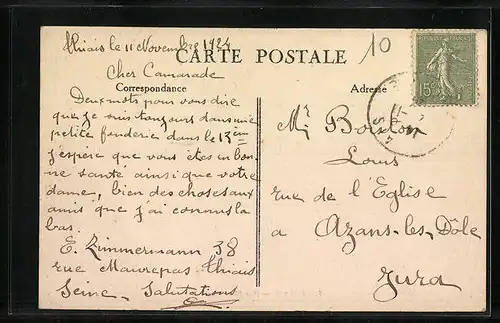 Thiais le 11 Novembre 1924
10
CARTE POSTALE
Cher Camarade
Correspondance
Adresse
15c
Deux mots pour vous dire
que je suis toujours dans une
petite fonderie dans le 13ème
j'espère que vous êtes en bon-
ne santé ainsi que votre
dame, bien des choses aux
amis que j'ai connus la
bas.
E. Zimmermann 38
rue Maurepas Thiais
Seine - Salutations
Mr
Louis
rue de l'Eglise
a Azans-les-Dôle
Jura